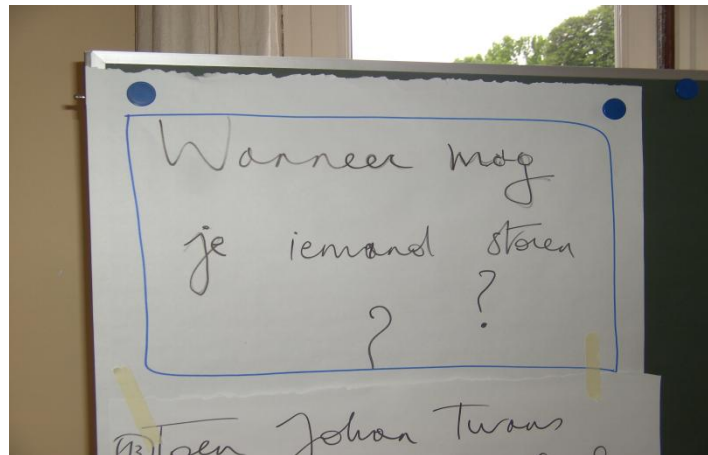 Wanneer mog
je iemand storen
? ?
Toen Johan